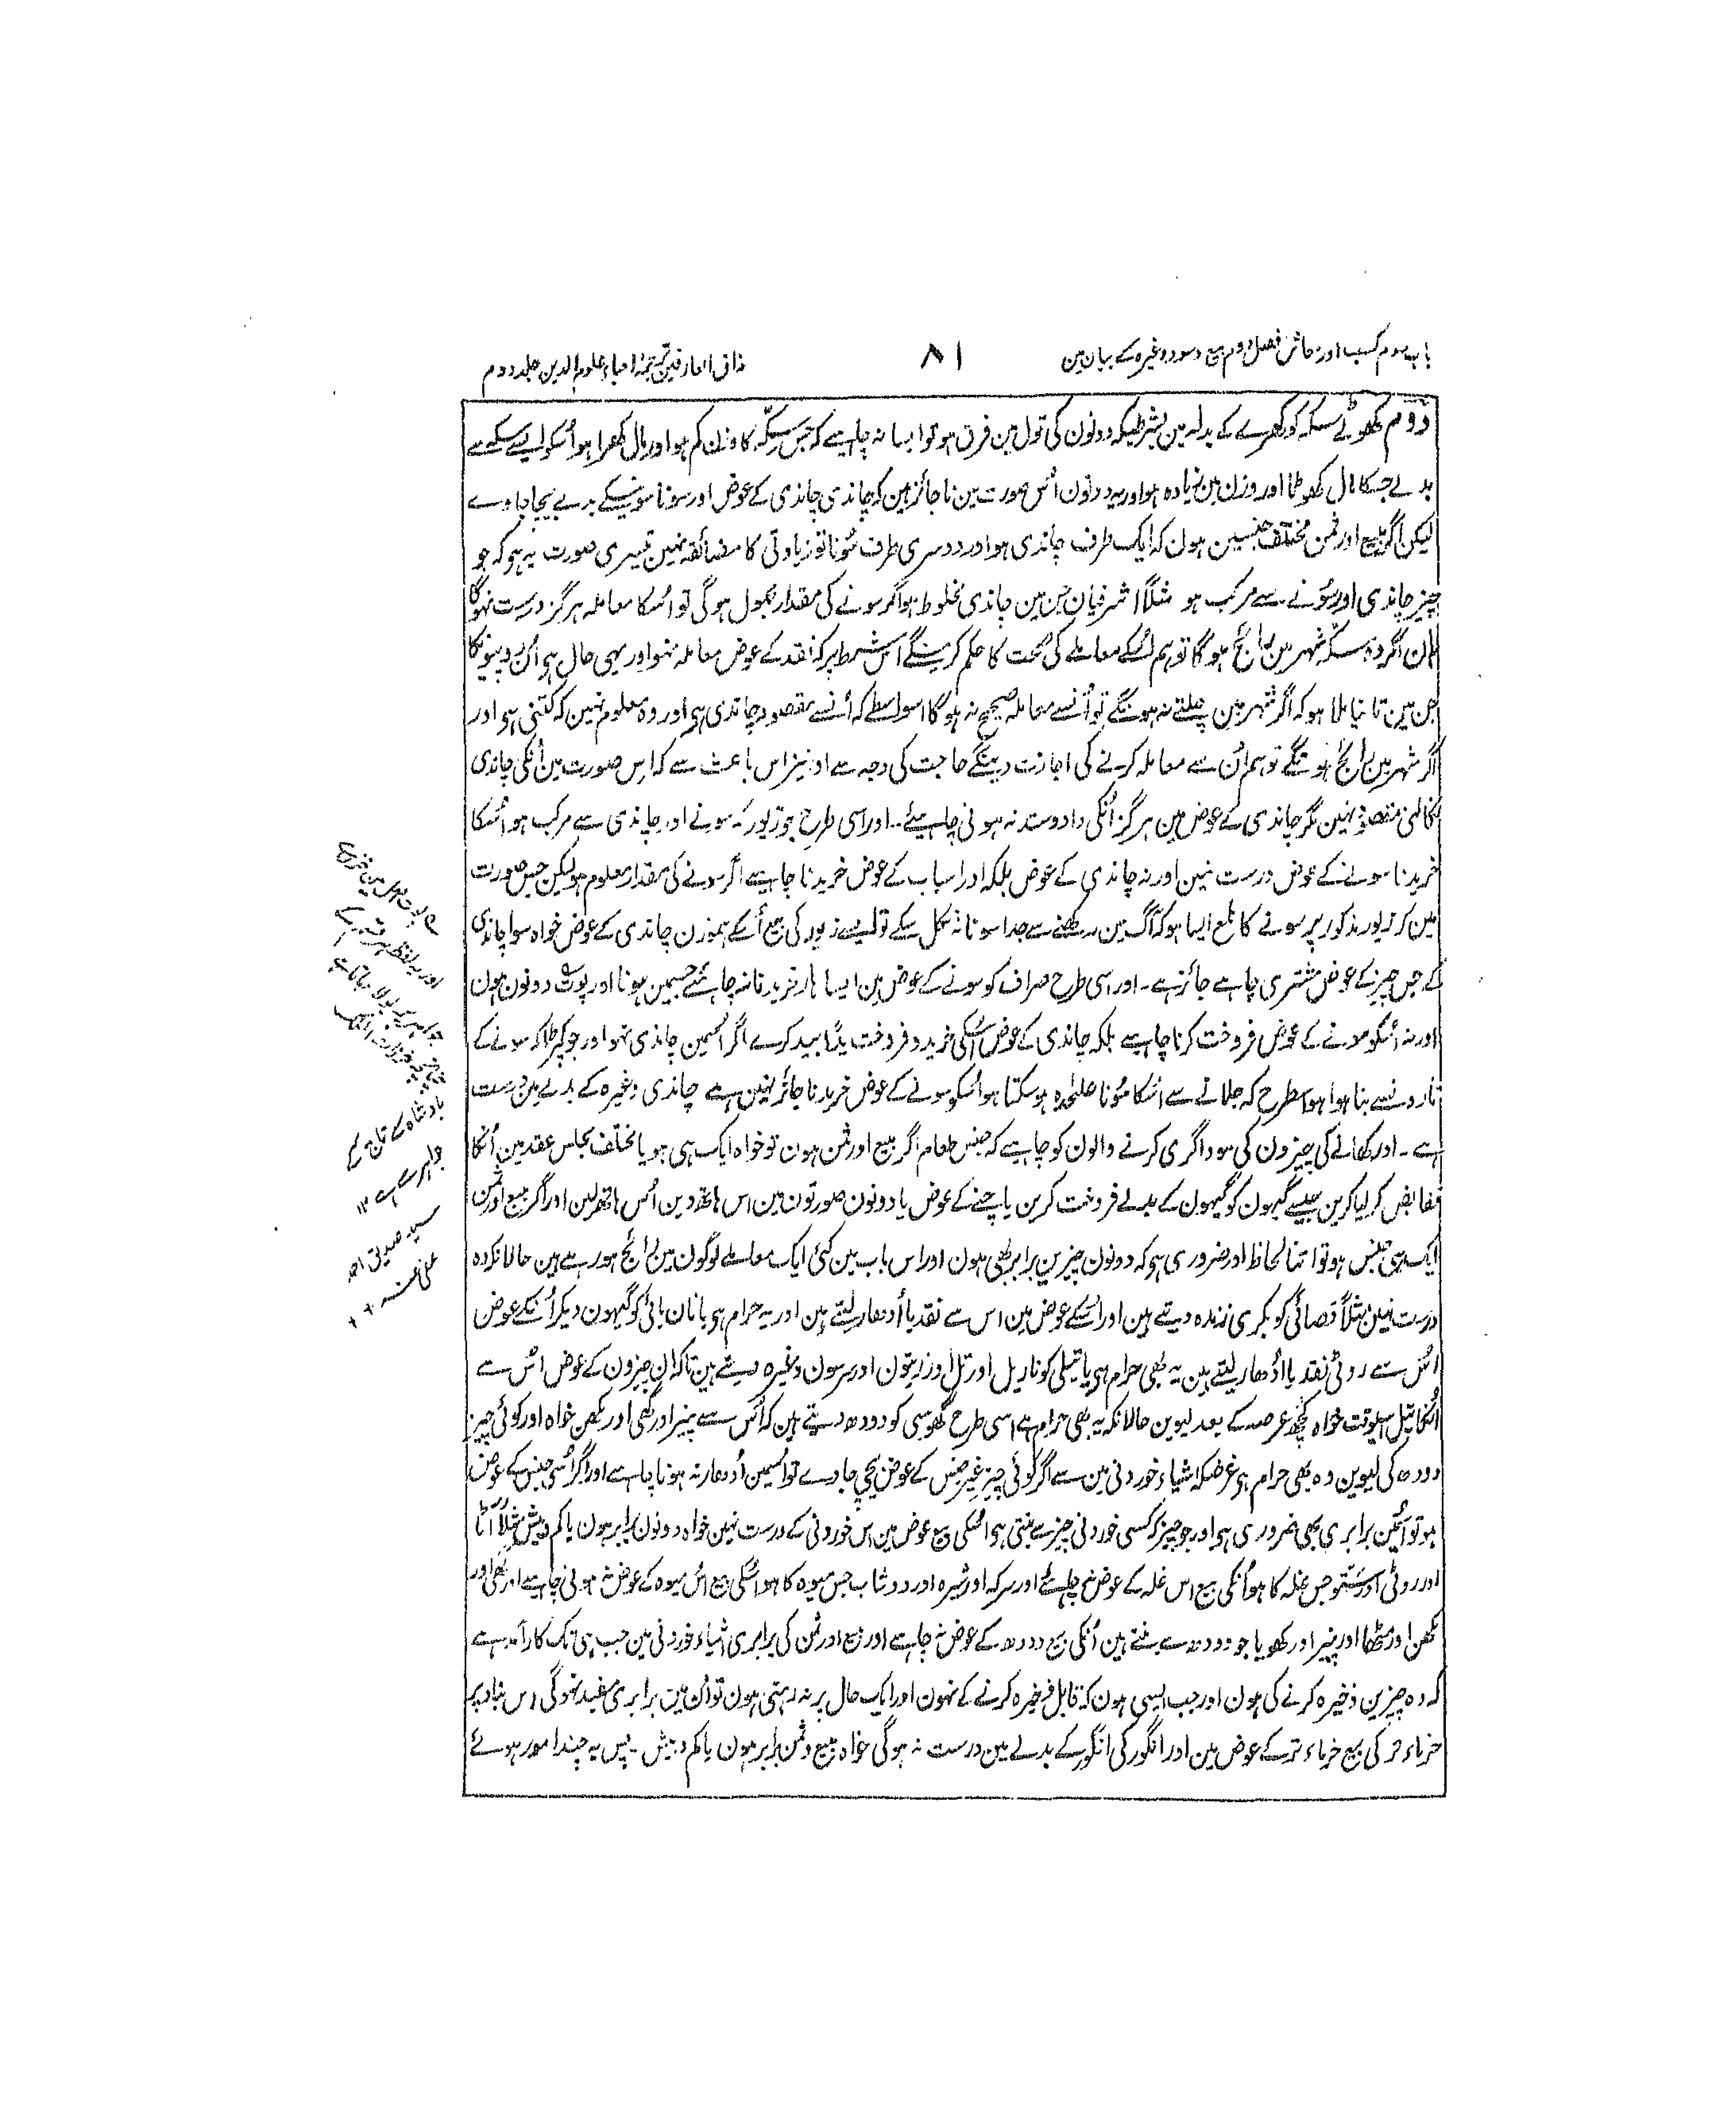 باب سوم کسب اور معاش فصل دوم بیع و سود وغیرہ کے بیان مین
۸۱
مذاق العارفین ترجمۂ احیاء علوم الدین جلد دوم
دوم کھوٹے سکہ کو کھرے کے بدلہ مین بشرطیکہ دونون کی تول مین فرق ہو تو ایسا نہ چاہیے کہ جس سکّہ کا وزن کم ہو اور مال کھرا ہو اُسکو ایسے سکے سے
بدلے جسکا مال کھوٹا اور وزن مین زیادہ ہو اور یہ دونون اُس صورت مین ناجائز ہین کہ چاندی چاندی کے عوض اور سونا سونیکے بدلے بیچا جاوے
لیکن اگر مبیع اور ثمن مختلف جنسین ہون کہ ایک طرف چاندی ہو اور دوسری طرف سُونا تو زیادتی کا مضائقہ نہین تیسری صورت یہ ہو کہ جو
چیز چاندی اور سُونے سے مرکب ہو مثلاً اشرفیان جن مین چاندی مخلوط ہو اگر سونے کی مقدار مجہول ہوگی تو اُسکا معاملہ ہرگز درست نہوگا
ہان اگر وہ سکّہ شہر مین رائج ہوگا تو ہم اُسکے معاملے کی صحت کا حکم کرینگے اس شرط پر کہ نقد کے عوض معاملہ نہو اور یہی حال ہو اُن روپیونکا
جن مین تانبا ملا ہو کہ اگر شہر مین چلتے نہ ہونگے تو اُنسے معاملہ صحیح نہ ہوگا اسواسطے کہ اُنسے مقصود چاندی ہو اور وہ معلوم نہین کہ کتنی ہو اور
اگر شہر مین رائج ہونگے تو ہم اُن سے معاملہ کرنے کی اجازت دینگے حاجت کی وجہ سے اور نیز اس باعث سے کہ اِس صورت مین اُنکی چاندی
نکالنی مقصود نہین مگر چاندی کے عوض مین ہرگز اُنکی داد وستد نہ ہونی چاہیئے۔ اور اسی طرح جو زیور کہ سونے اور چاندی سے مرکب ہو اُسکا
خریدنا سونے کے عوض درست نہین اور نہ چاندی کے عوض بلکہ اور اسباب کے عوض خریدنا چاہیے اگر سونے کی مقدار معلوم ہو لیکن جس صورت
مین کہ زیور مذکور پر سونے کا ملمع ایسا ہو کہ آگ مین رکھنے سے جدا سونا نہ نکل سکے تو ایسے زیور کی بیع اُسکے ہموزن چاندی کے عوض خواہ سوا چاندی
کے جس چیز کے عوض مشتری چاہے جائز ہے۔ اور اسی طرح صراف کو سونے کے عوض مین ایسا ہار خریدنا نہ چاہئے جسمین سونا اور پوت دونون ہون
اور نہ اُسکو سونے کے عوض فروخت کرنا چاہیے بلکہ چاندی کے عوض اُسکی خرید و فروخت یداً بید کرے اگر اُسمین چاندی نہو اور جو کپڑا کہ سونے کے
تارونسے بنا ہوا ہو اسطرح کہ جلانے سے اُسکا سُونا علٰحدہ ہو سکتا ہو اُسکو سونے کے عوض خریدنا جائز نہین ہے چاندی وغیرہ کے بدلے مین درست
ہے۔ اور کھانے کی چیزون کی سوداگری کرنے والون کو چاہیے کہ جنس طعام اگر مبیع اور ثمن ہون تو خواہ ایک ہی ہو یا مختلف مجلس عقد مین اُنکا
تقابض کر لیا کرین جیسے گیہون کو گیہون کے بدلے فروخت کرین یا چنے کے عوض یا دونون صورتون مین اس ہاتھ دین اُس ہاتھ لین اور اگر مبیع اور ثمن
ایک ہی جنس ہو تو اتنا لحاظ اور ضروری ہو کہ دونون چیزین برابر بھی ہون اور اس باب مین کئی ایک معاملے لوگون مین رائج ہو رہے ہین حالانکہ وہ
درست نہین مثلاً قصائی کو بکری زندہ دیتے ہین اور اُسکے عوض مین اس سے نقد یا اُدھار لیتے ہین اور یہ حرام ہو یا نان بائی کو گیہون دیکر اُنکے عوض
اُس سے روٹی نقد یا اُدھار لیتے ہین یہ بھی حرام ہو یا تیلی کو ناریل اور تل اور زیتون اور سرسون وغیرہ دیتے ہین تاکہ ان چیزون کے عوض اُس سے
اُنکا تیل اسیوقت خواہ کچھ عرصہ کے بعد لیوین حالانکہ یہ بھی حرام ہے اسی طرح گھوسی کو دودھ دیتے ہین کہ اُس سے پنیر اور گھی اور مکھن خواہ اور کوئی چیز
دودھ کی لیوین وہ بھی حرام ہو غرضکہ اشیاء خوردنی مین سے اگر کوئی چیز غیر جنس کے عوض بیچی جاوے تو اُسمین اُدھار نہ ہونا چاہیے اور اگر اُسی جنس کے عوض
ہو تو اُسمین برابری بھی ضروری ہو اور جو چیز کہ کسی خوردنی چیز سے بنتی ہو اُسکی بیع عوض مین اس خوردنی کے درست نہین خواہ دونون برابر ہون یا کم وبیش مثلاً آٹا
اور روٹی اور ستو جس غلہ کا ہو اُنکی بیع اس غلہ کے عوض نہ چاہیے اور سرکہ اور شیرہ اور دوشاب جس میوہ کا ہو اُسکی بیع اُس میوہ کے عوض نہ ہونی چاہیے اور گھی اور
مکھن اور مٹھا اور پنیر اور کھویا جو دودھ سے بنتے ہین اُنکی بیع دودھ کے عوض نہ چاہیے اور مبیع اور ثمن کی برابری اشیاء خوردنی مین جب ہی تک کارآمد ہے
کہ وہ چیزین ذخیرہ کرنے کی ہون اور جب ایسی ہون کہ قابل ذخیرہ کرنے کے نہون اور ایک حال پر نہ رہتی ہون تو اُن مین برابری مفید نہوگی اس بنا پر
خرماء تر کی بیع خرماء تر کے عوض مین اور انگور کی انگور کے بدلے مین درست نہ ہوگی خواہ مبیع و ثمن برابر ہون یا کم وبیش۔ پس یہ چند امور ہوئے
پوت
اور یہ لفظ
جواہر پر بولا جاتا ہے
بادشاہ کے تاج کے
جواہر سے ہے ۱۲
سید صدیق احمد
عفی عنہ